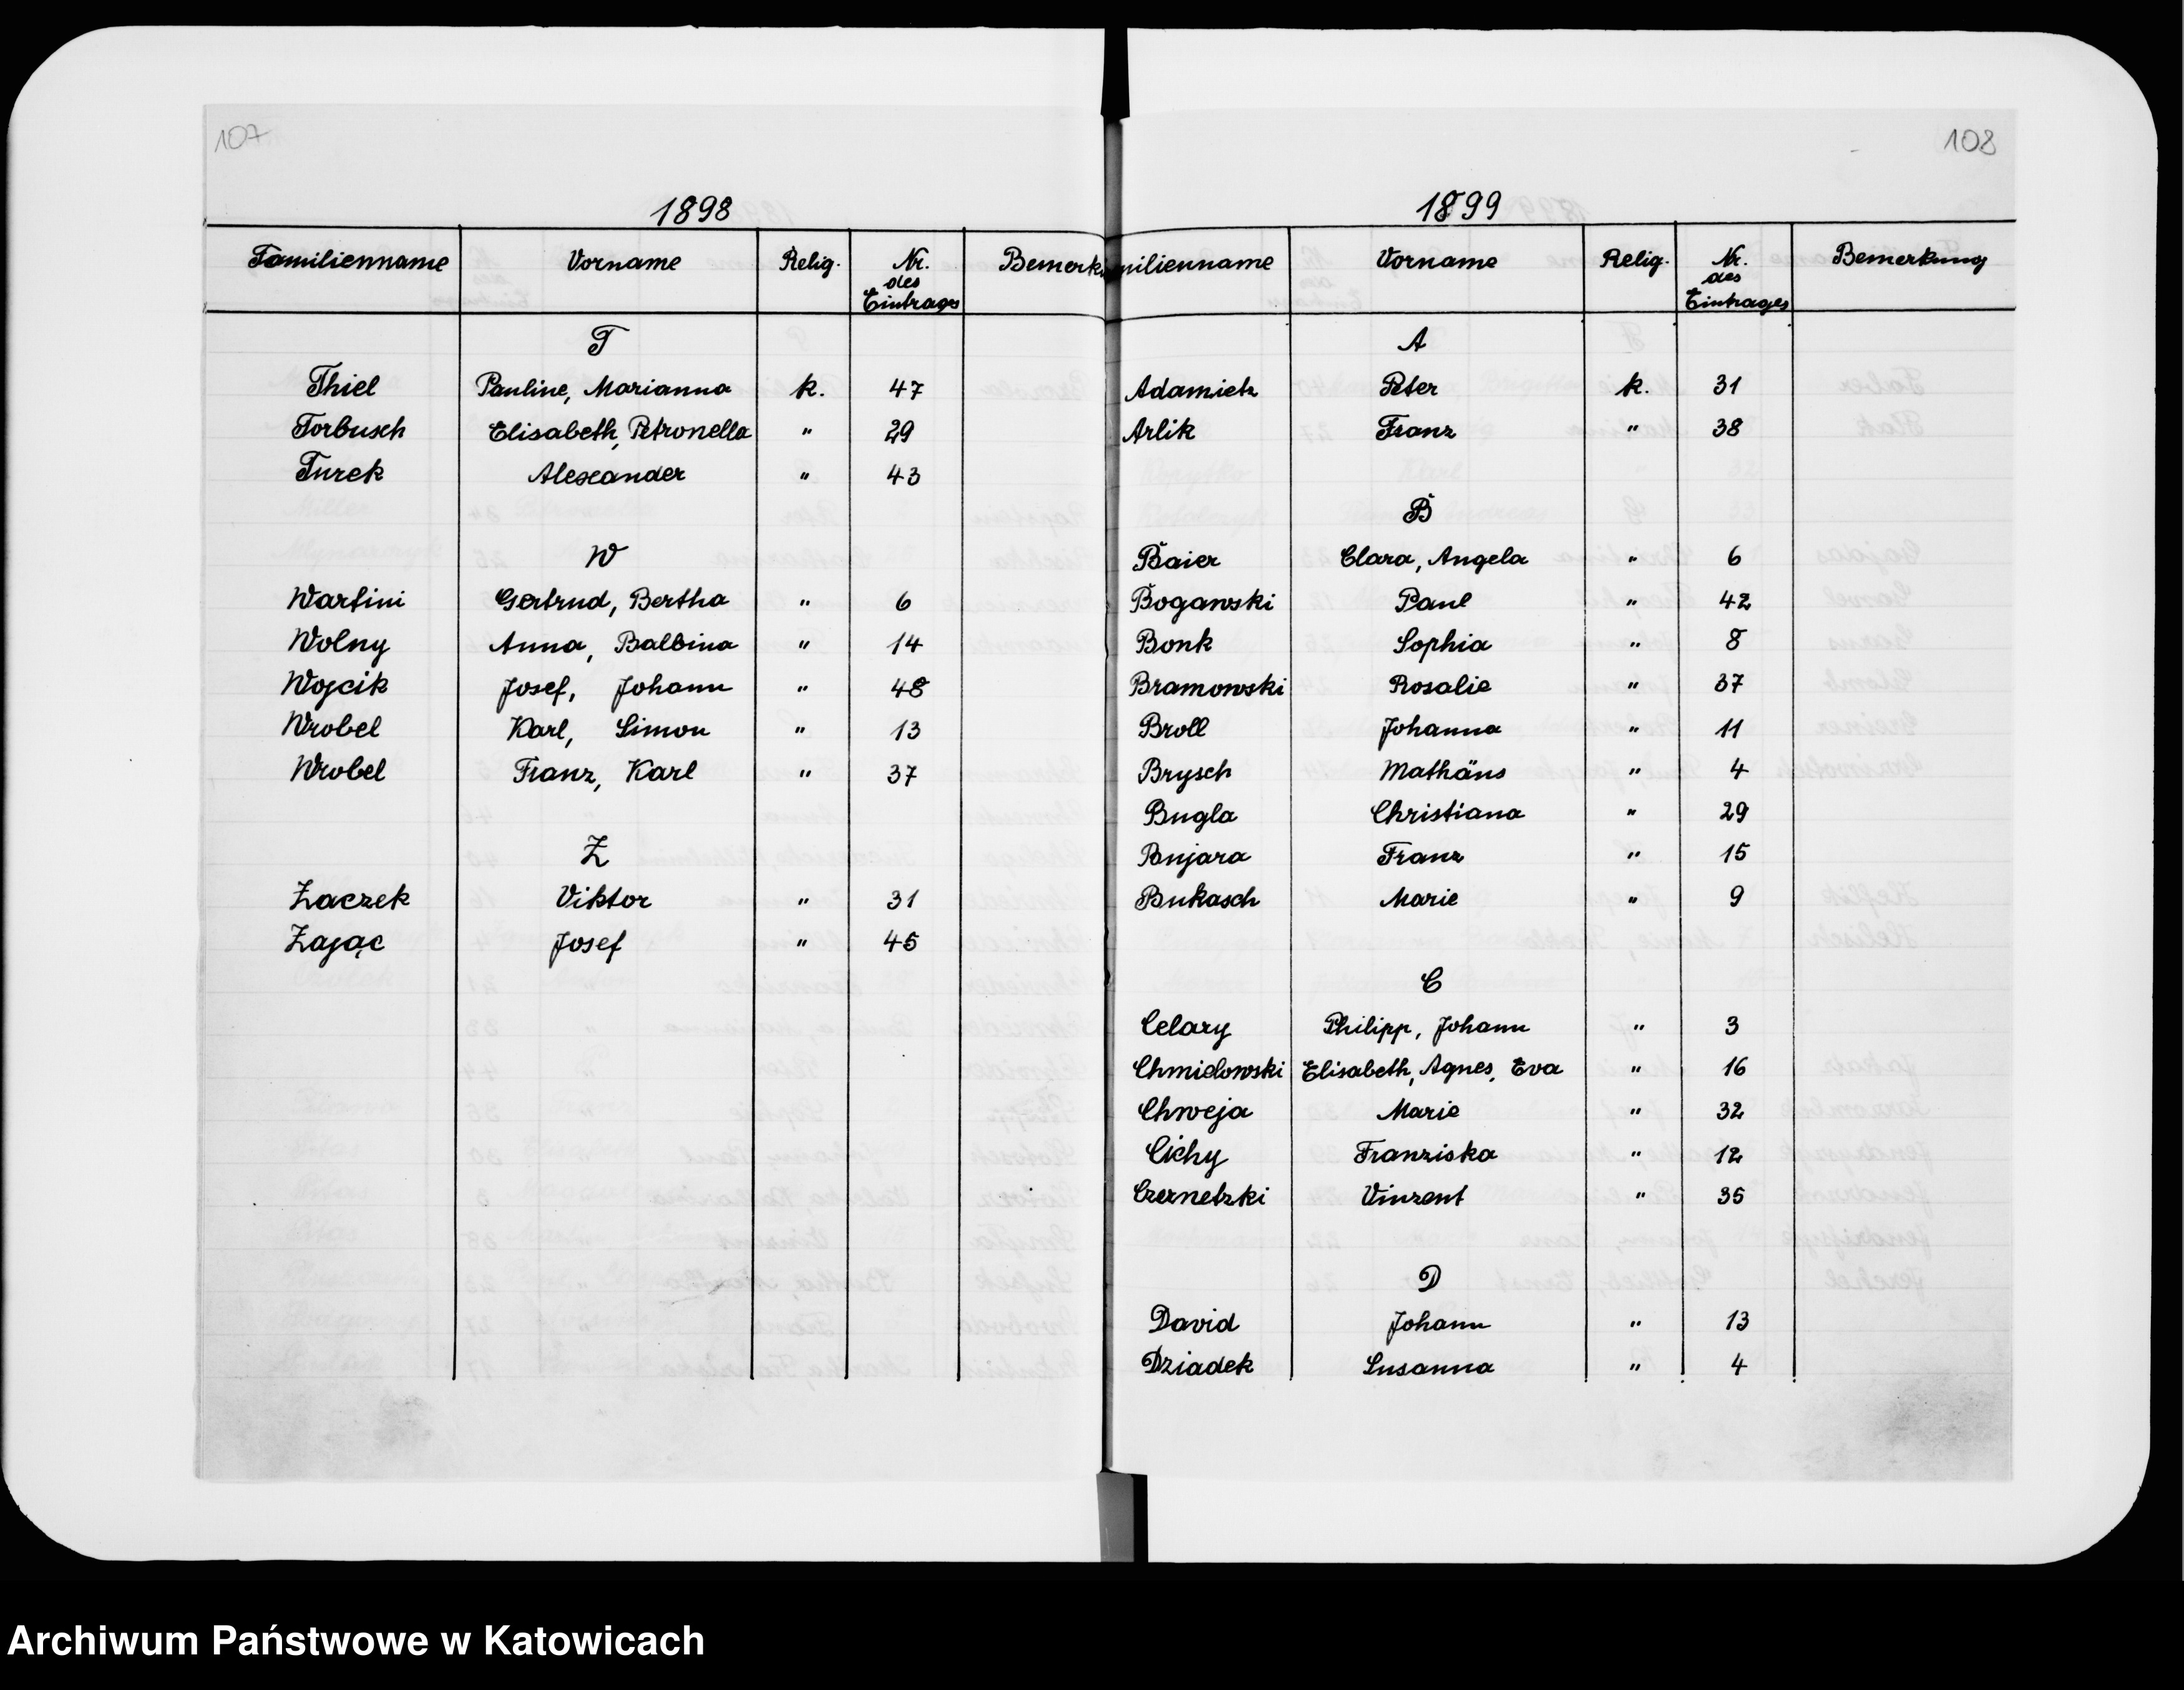 107
1898
Familienname Vorname Relig. Nr. des Eintrages Bemerk
T
Thiel Pauline, Marianna k. 47
Torbusch Elisabeth, Petronella " 29
Turek Alexander " 43
W
Wartini Gertrud, Bertha " 6
Wolny Anna, Balbina " 14
Wojcik Josef, Johann " 48
Wrobel Karl, Simon " 13
Wrobel Franz, Karl " 37
Z
Zaczek Viktor " 31
Zając Josef " 45
108
1899
milienname Vorname Relig. Nr. des Eintrages Bemerkung
A
Adamietz Peter k. 31
Arlik Franz " 38
B
Baier Clara, Angela " 6
Bogawski Paul " 42
Bonk Sophia " 8
Bramowski Rosalie " 37
Broll Johanna " 11
Brysch Mathäus " 4
Bugla Christiana " 29
Bujara Franz " 15
Bukasch Marie " 9
C
Celary Philipp, Johann " 3
Chmidowski Elisabeth, Agnes, Eva " 16
Chweja Marie " 32
Cichy Franziska " 12
Czernetzki Vinzent " 35
D
David Johann " 13
Dziadek Susanna " 4
Archiwum Państwowe w Katowicach